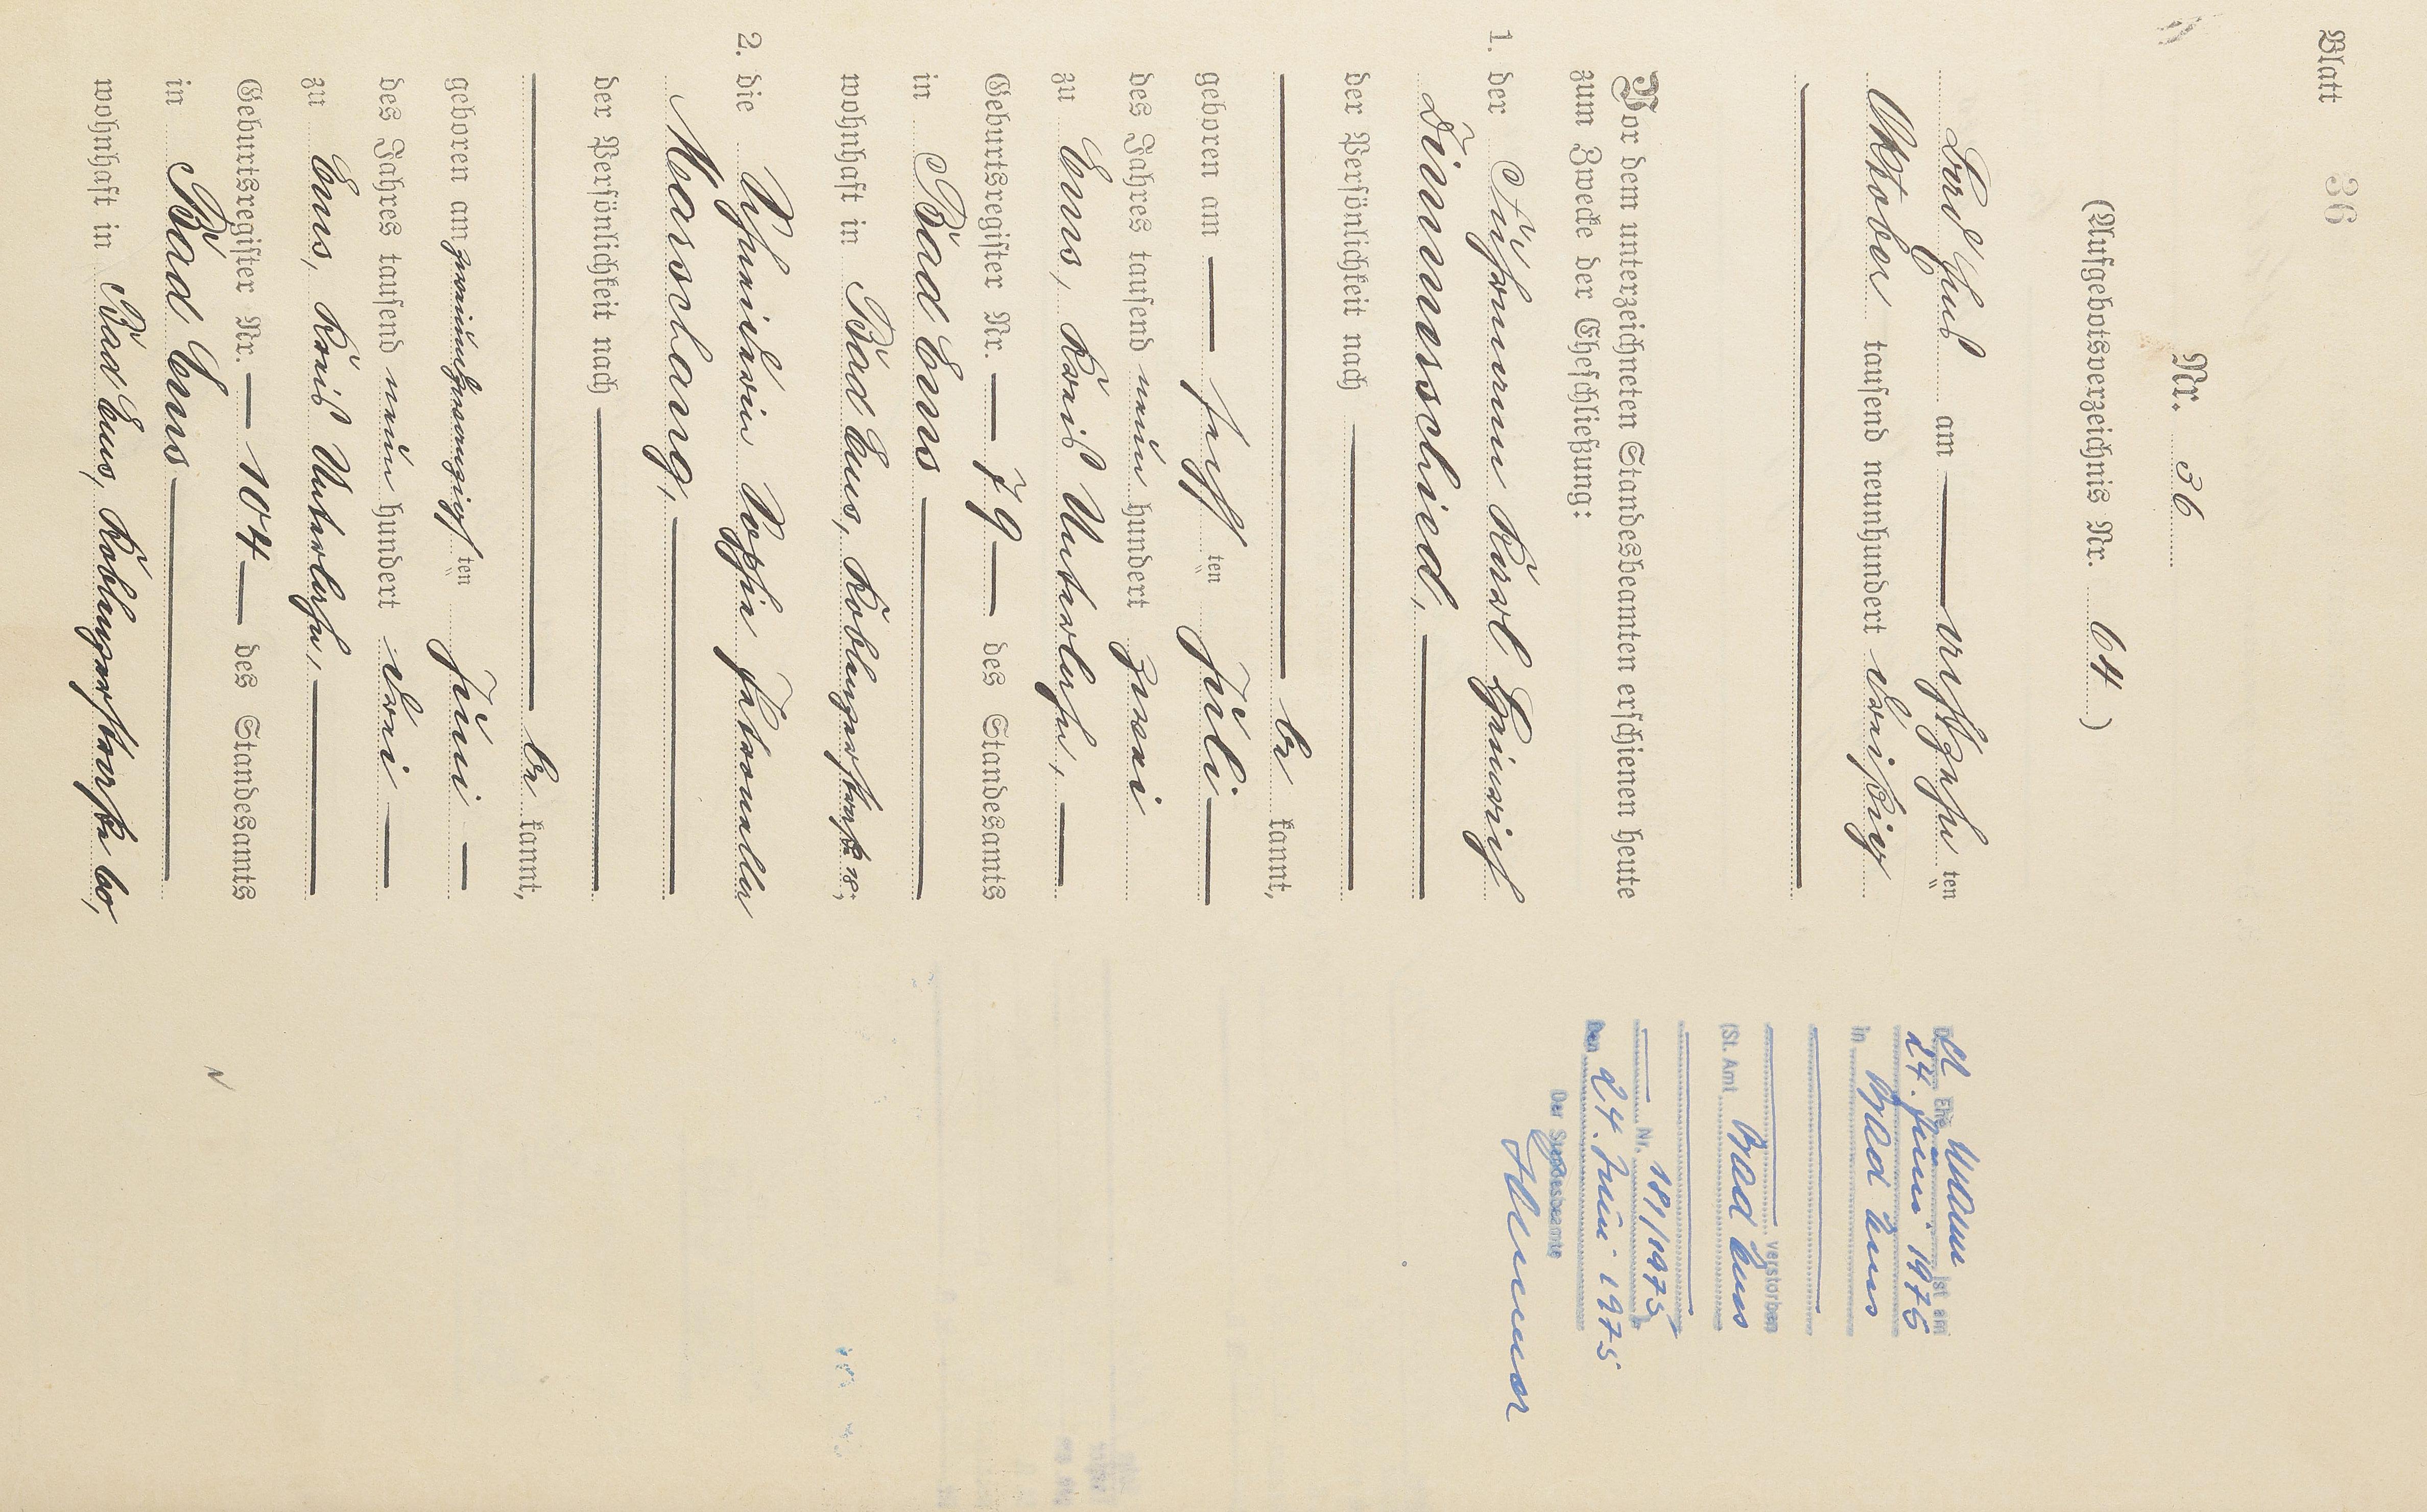 Blatt 36
Nr. 36
(Aufgebotsverzeichnis Nr. 64)
Bad Ems am achtzehn ten
Oktober tausend neunhundert dreißig
Vor dem unterzeichneten Standesbeamten erschienen heute
zum Zwecke der Eheschließung:
1. der Fuhrmann Karl Heinrich
Zimmerschied,
der Persönlichkeit nach
be kannt,
geboren am ten Juli
des Jahres tausend neun hundert zwei
zu Ems, Kreis Unterlahn,
Geburtsregister Nr. 79 des Standesamts
in Bad Ems
wohnhaft in Bad Ems, Koblenzerstraße
2. die Schneiderin Sophie Petronella
Marschang,
der Persönlichkeit nach
be kannt,
geboren am zweiundzwanzigs ten Juni
des Jahres tausend neun hundert drei
zu Ems, Kreis Unterlahn,
Geburtsregister Nr. 104 des Standesamts
in Bad Ems
wohnhaft in Bad Ems, Koblenzerstraße 60,
Der Ehe Mann ist am
24. Juni 1975
in Bad Ems
verstorben
(St. Amt Bad Ems
Nr. 181/1975)
Den 24. Juni 1975
Der Standesbeamte